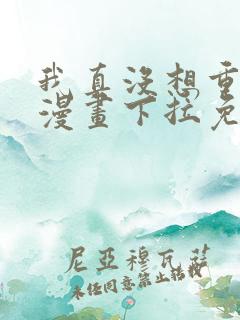 我真没想重
漫畫下拉免
尼亞穆瓦茲
未任同意禁止转载